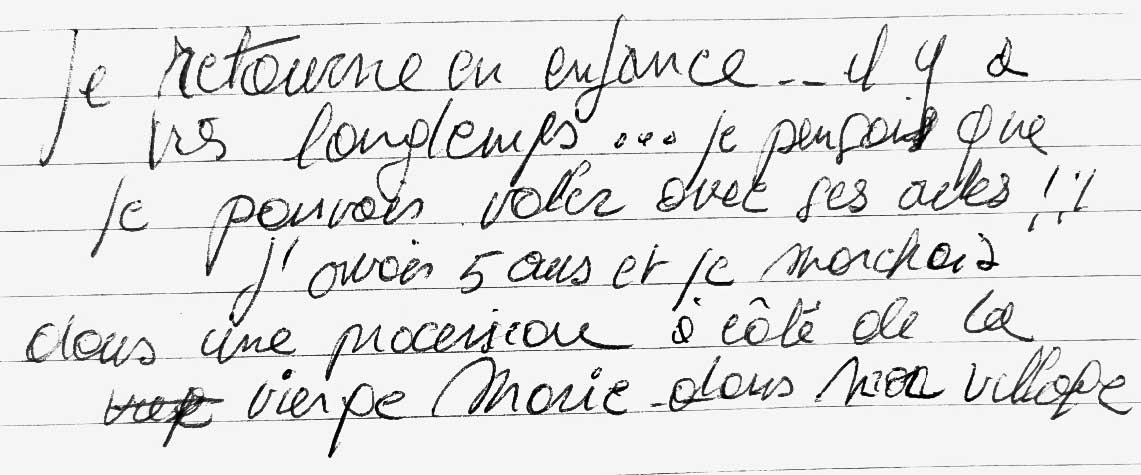 Je retourne en enfance -- il y a
très longtemps ... je pensais que
je pouvais voler avec ses ailes !!!
j'avais 5 ans et je marchais
dans une procession à côté de la
vierge Marie dans mon village